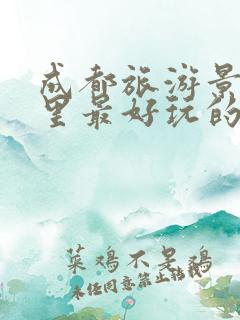 成都旅游景
里最好玩的
菜鸡不是鸡
未经同意禁止转载